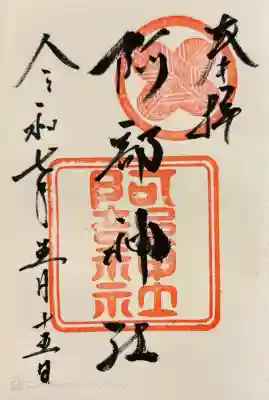 奉拝
阿部神社
阿部神社
令和七年五月十五日